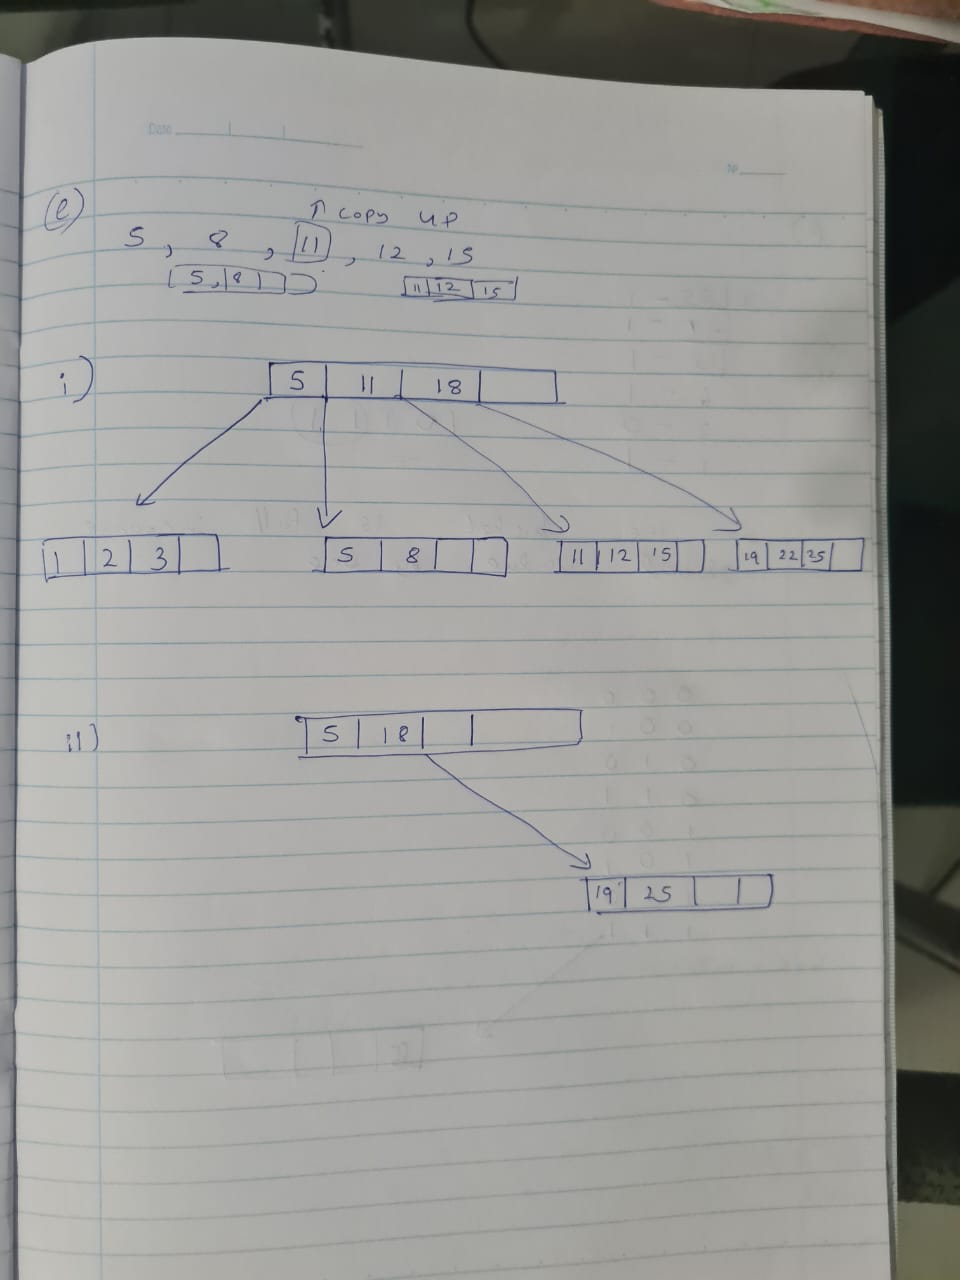 Date
№
(e)
↑ copy up
5, 8, 11, 12, 15
5, 8 11 12 15
i) 5 11 18
1 2 3 5 8 11 12 15 19 22 25
ii) 5 18
19 25